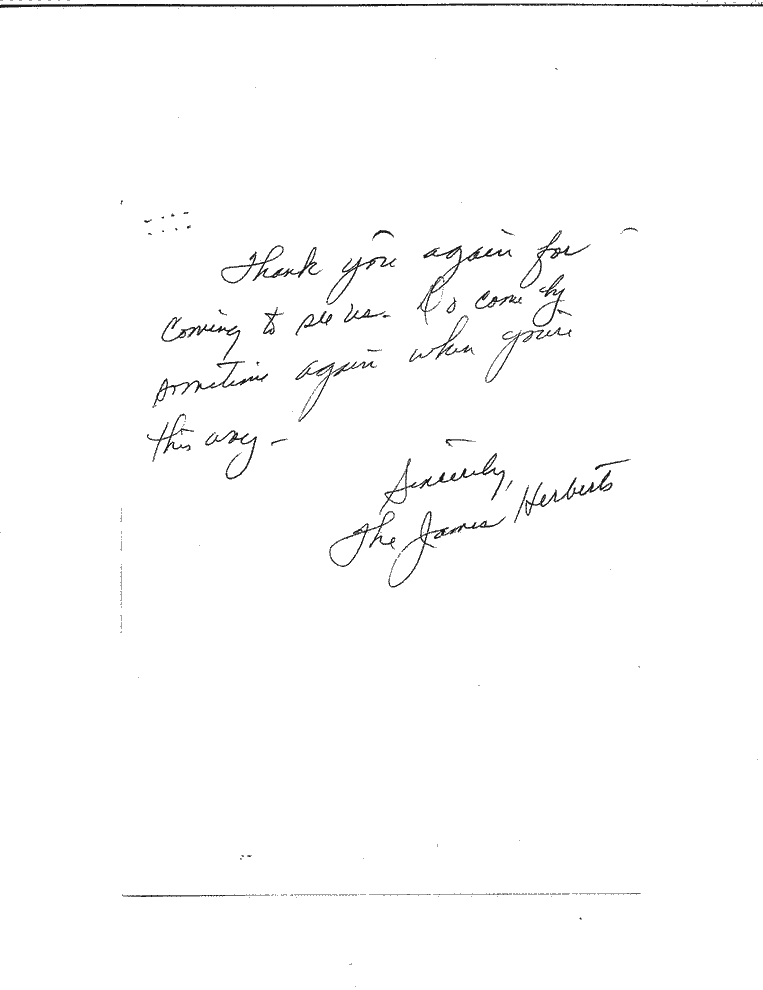 Thank you again for
coming to see us. Do come by
sometime again when you're
this way -
Sincerely,
The James Herberts